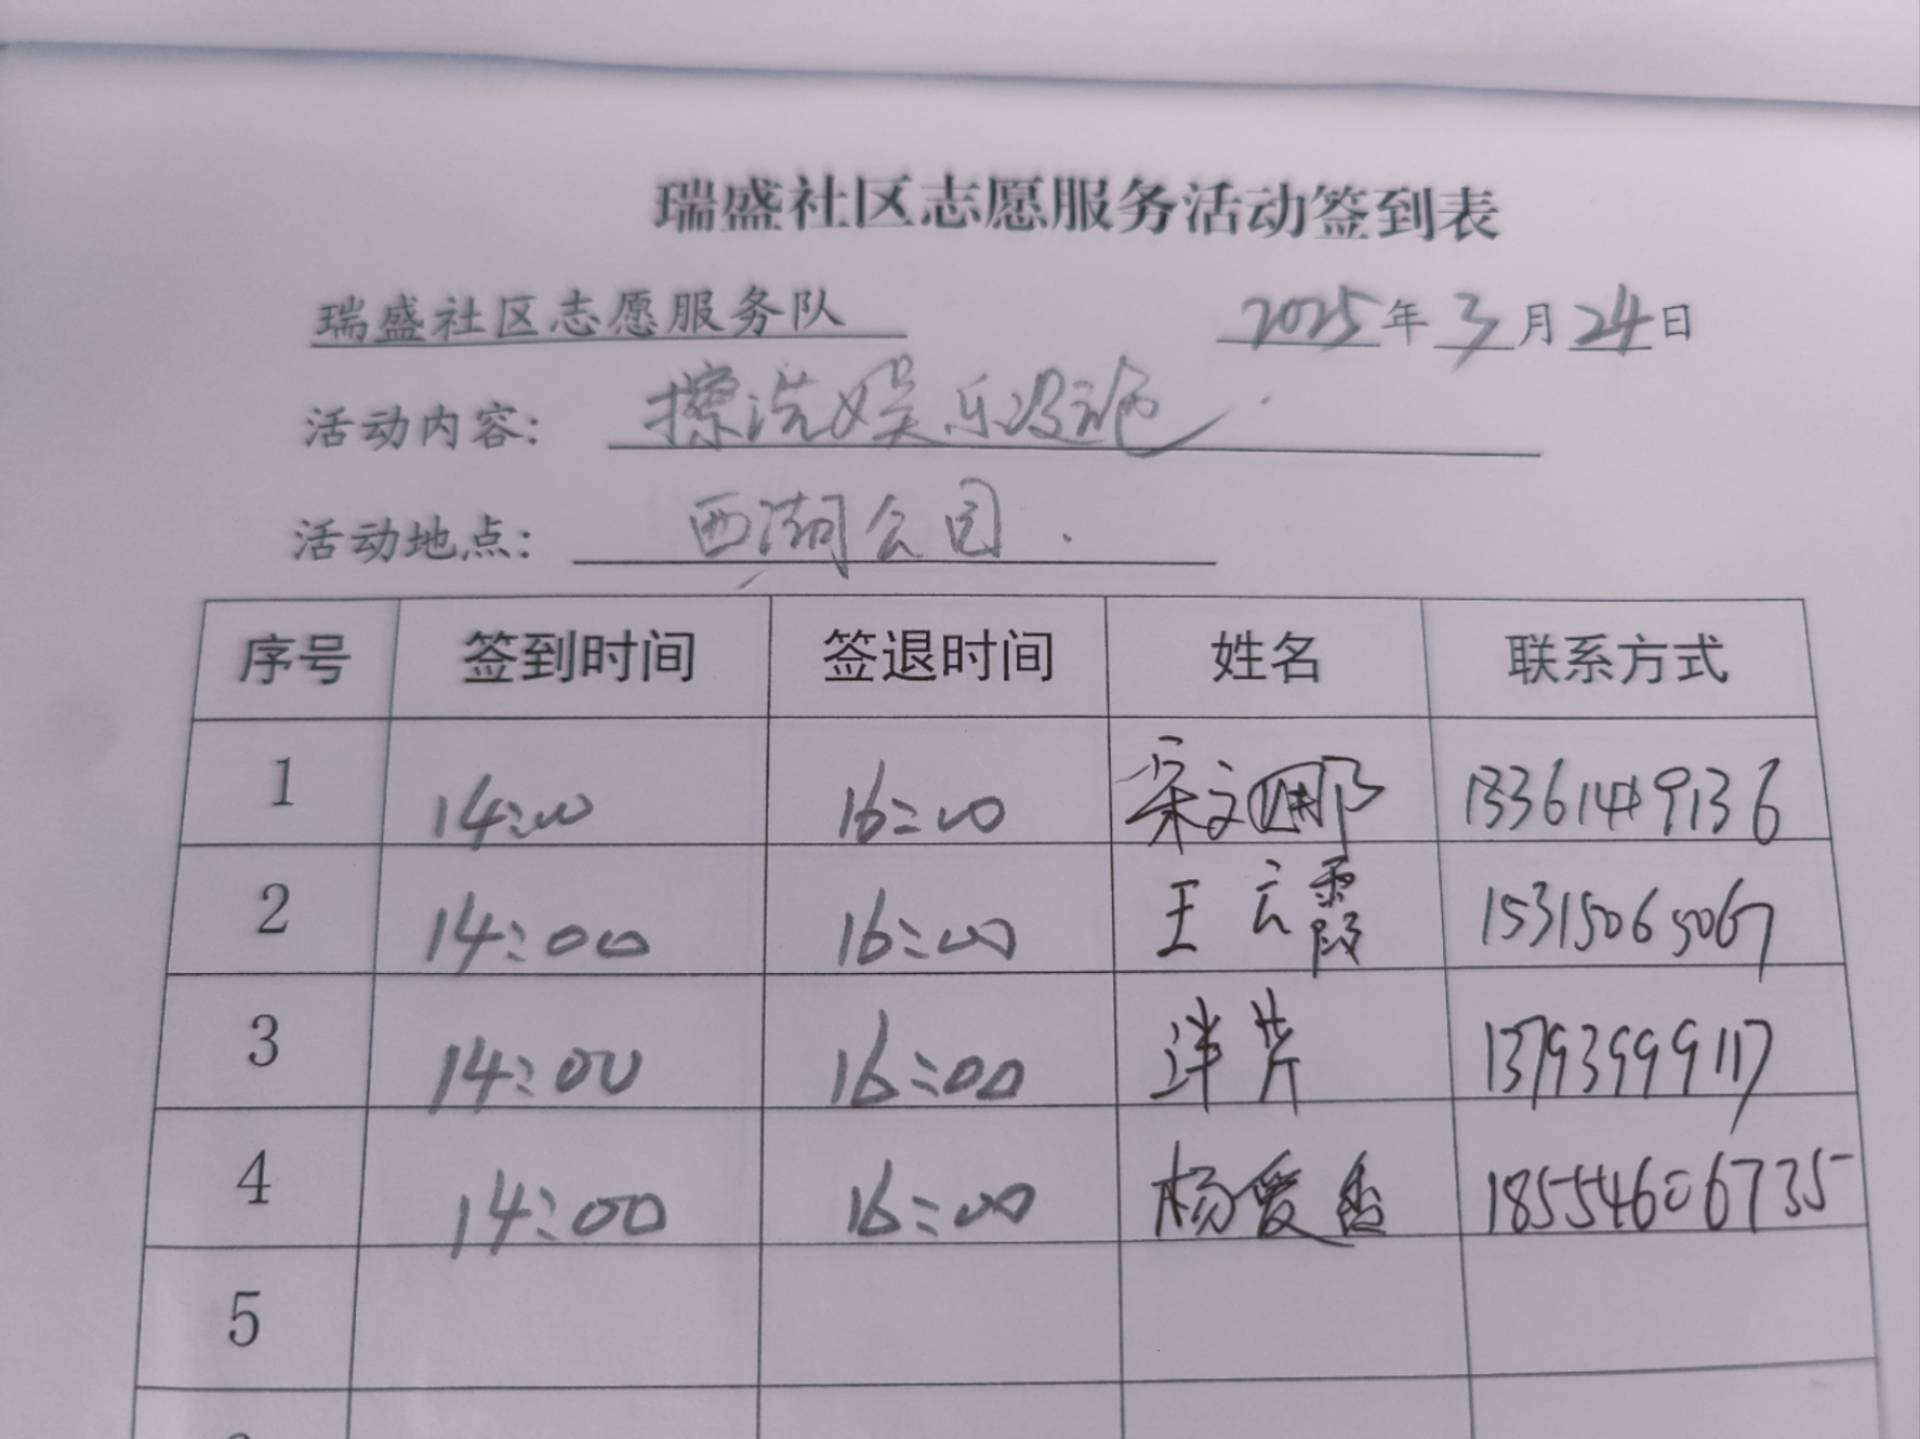 瑞盛社区志愿服务活动签到表
瑞盛社区志愿服务队 2025年3月24日
活动内容： 擦洗娱乐设施.
活动地点： 西湖公园.
序号 签到时间 签退时间 姓名 联系方式
1 14:00 16:00 宋文娜
2 14:00 16:00 王云霞 15315065067
3 14:00 16:00 13793999117
4 14:00 16:00 杨爱香 18554606735
5